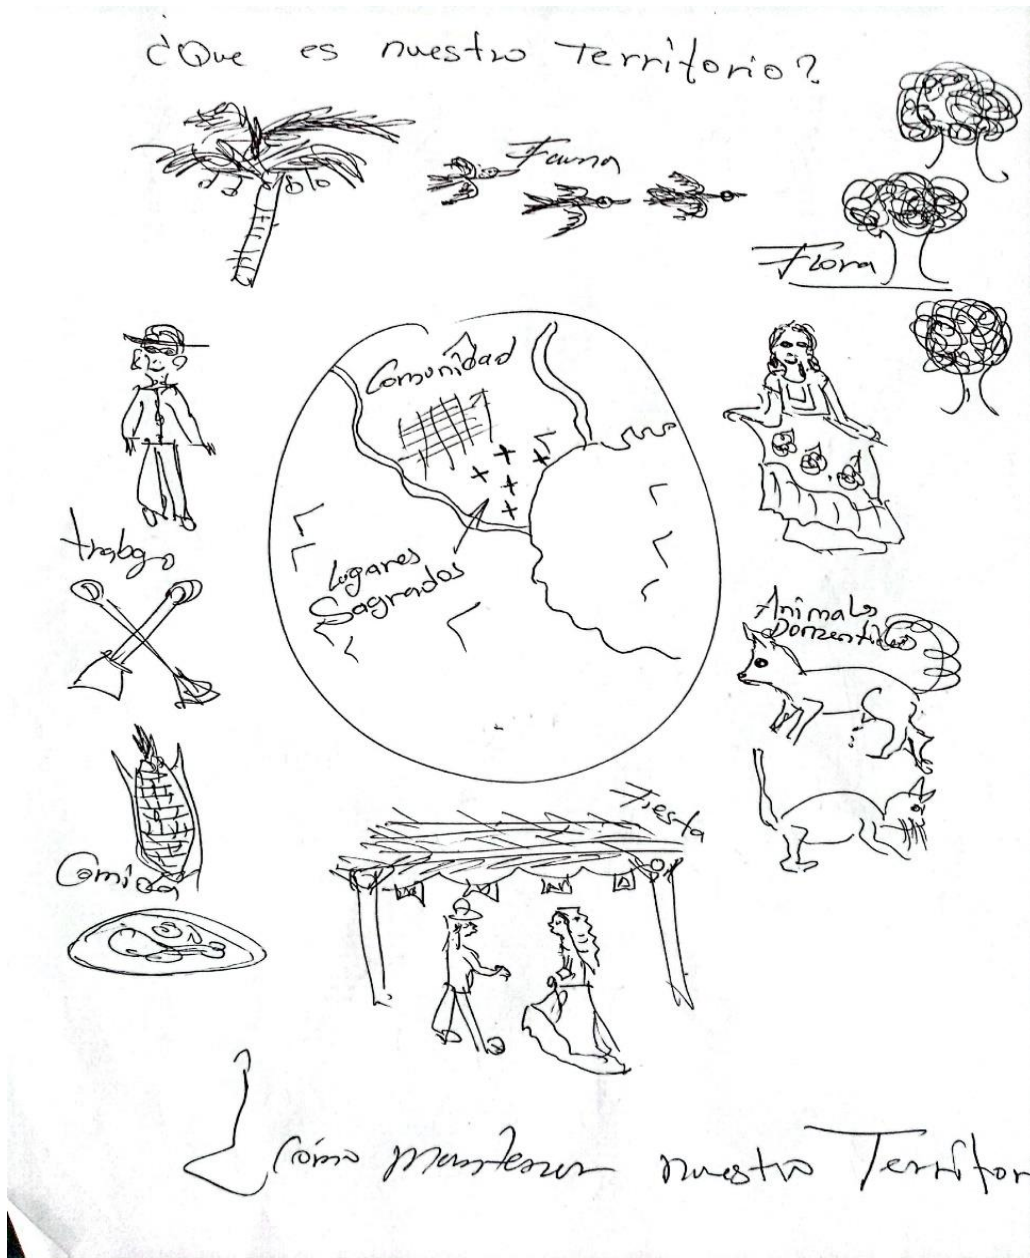 ¿Que es nuestro Territorio?
Fauna
Flora
Comunidad
Lugares
Sagrados
trabajo
Animales
Domenticos
Comida
Fiesta
¿Cómo mantener nuestro Territor